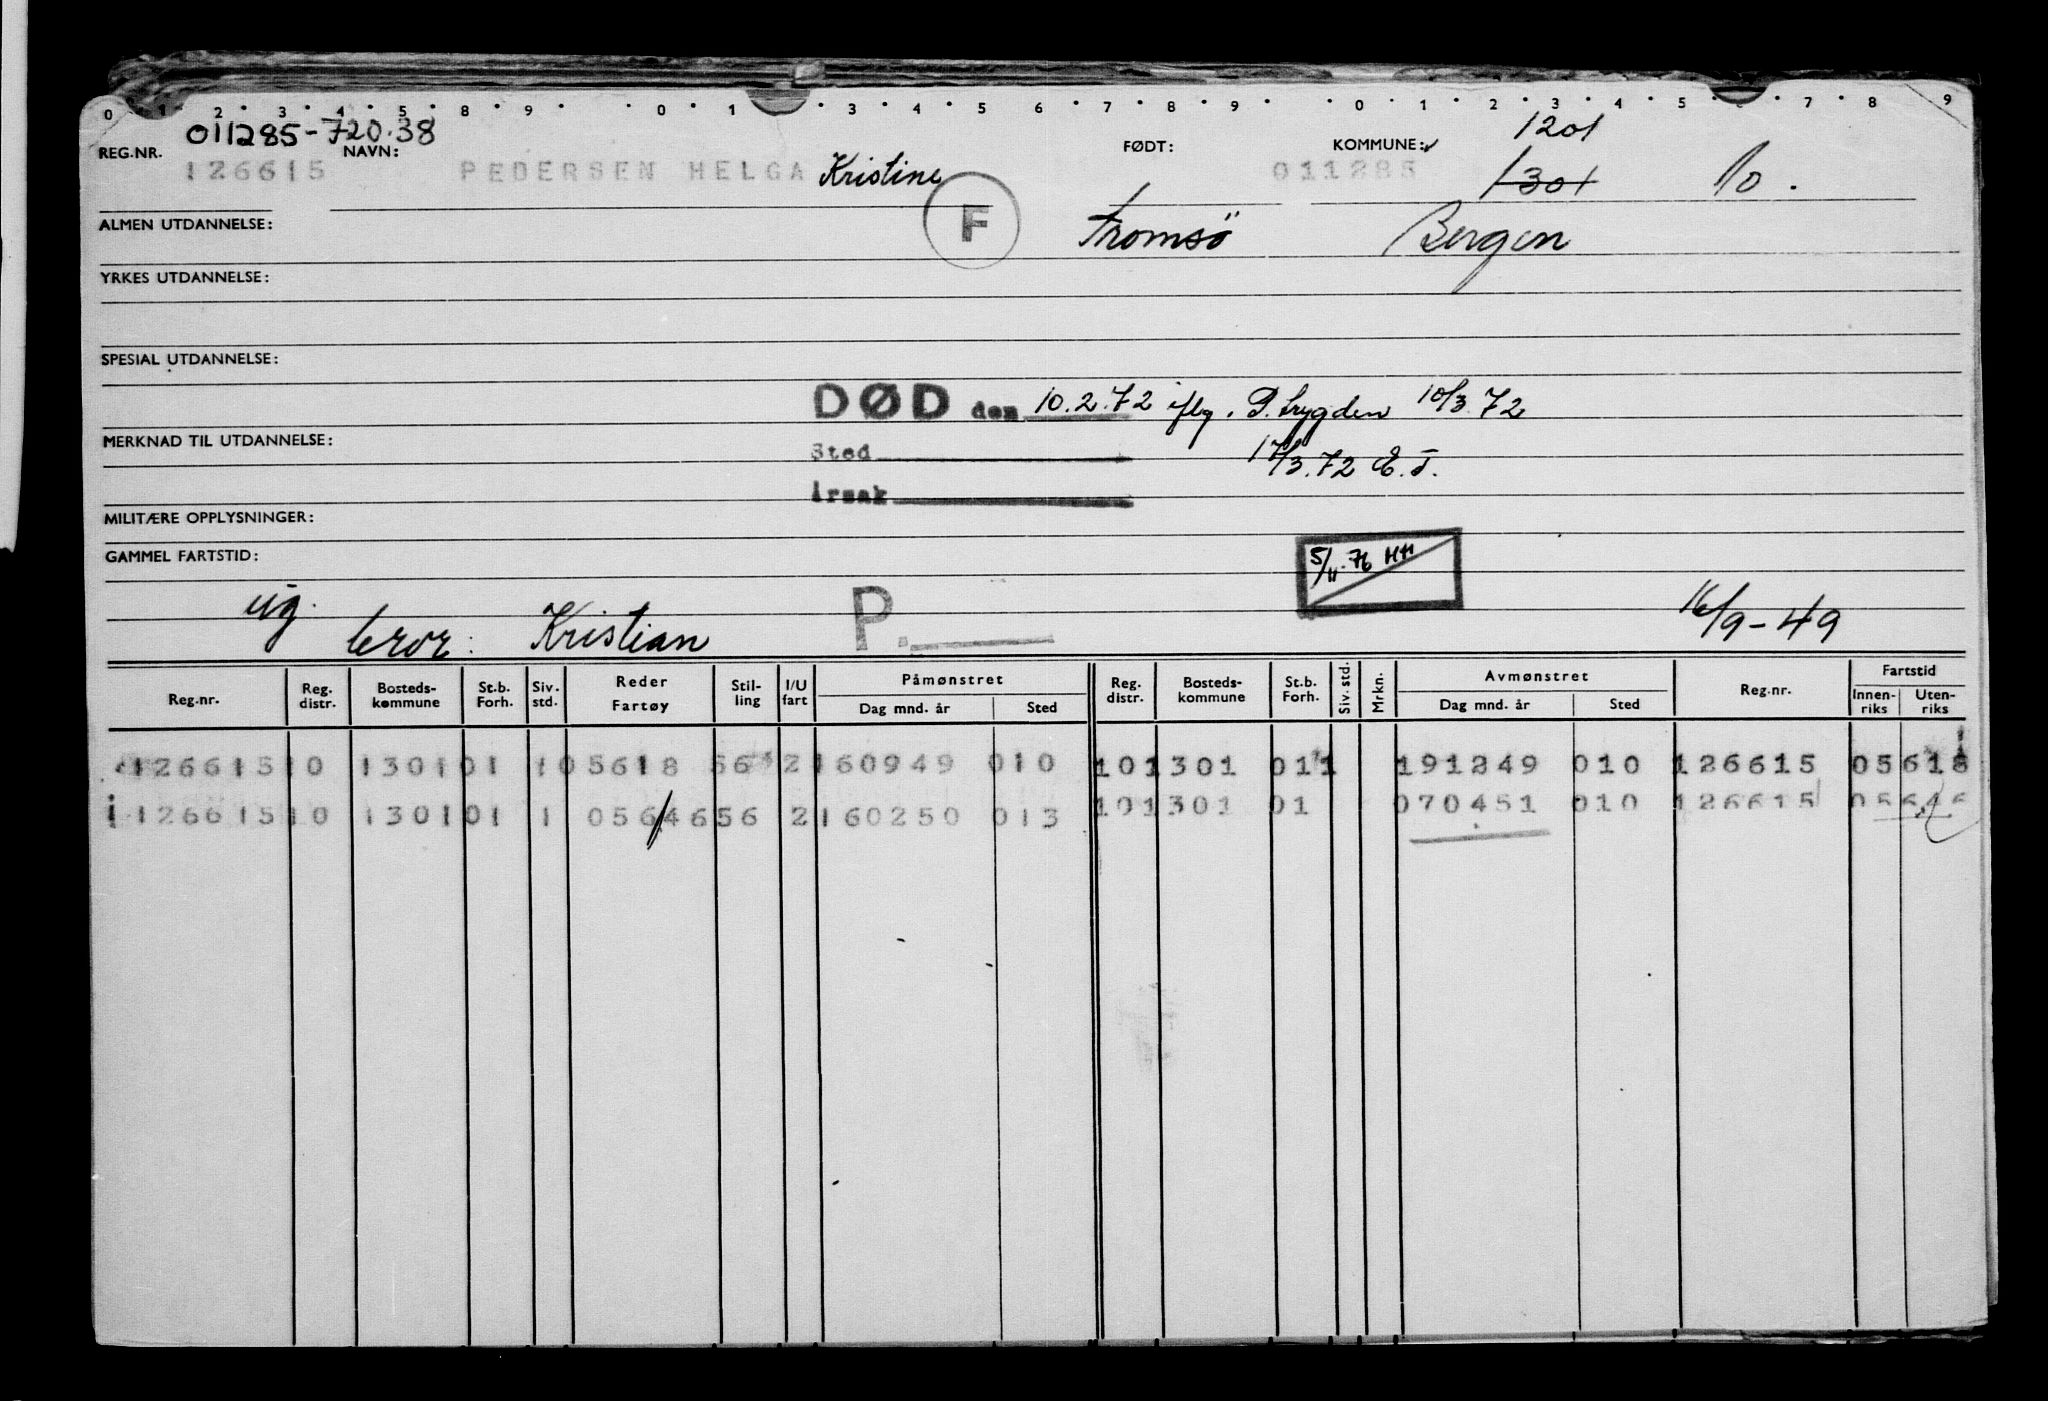 0 1 2 3 4 5 8 9 0 1 3 4 5 6 7 8 9 0 1 2 3 4 5 6 7 8 9
011285-720.38
1201
REG.NR. NAVN: FØDT: KOMMUNE:
126615 PEDERSEN HELGA Kristine 011285 1301 10.
ALMEN UTDANNELSE: F Tromsö Bergen
YRKES UTDANNELSE:
SPESIAL UTDANNELSE:
DØD den 10.2.72 iflg. P. trygden 10/3.72
MERKNAD TIL UTDANNELSE:
Sted 17/3.72 E.T.
Årsak
MILITÆRE OPPLYSNINGER:
GAMMEL FARTSTID: 5/11.76 HH
ug. bror: Kristian P. 16/9-49
Reg.nr. Reg. distr. Bosteds-kommune St.b. Forh. Siv. std. Reder Fartøy Stil-ling I/U fart Påmønstret Dag mnd. år Sted Reg. distr. Bosteds-kommune St.b. Forh. Siv. std. Mrkn. Avmønstret Dag mnd. år Sted Reg.nr. Fartstid Innen-riks Uten-riks
126615 10 1301 01 1 05618 56 2 160949 010 10 1301 01 1 191249 010 126615 05618
126615 10 1301 01 1 05646 56 2 160250 013 10 1301 01 070451 010 126615 05646